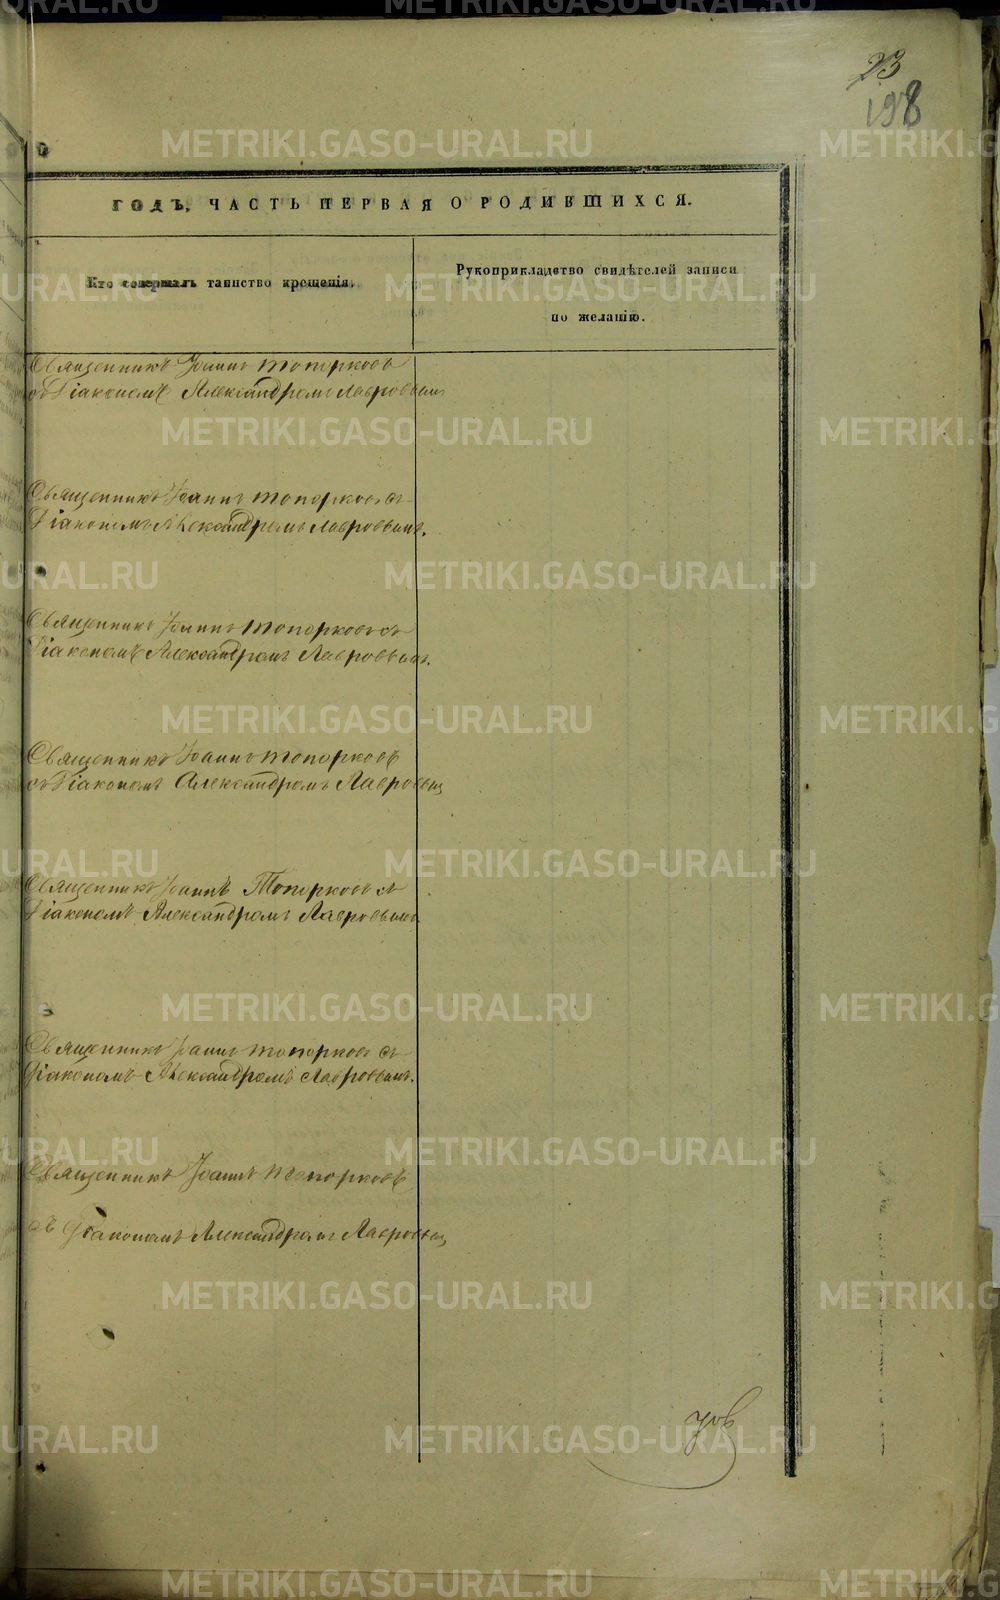 23
198
ГОДЪ, ЧАСТЬ ПЕРВАЯ О РОДИВШИХСЯ.
Кто совершалъ таинство крещенія.
Рукоприкладство свидѣтелей записи
по желанію.
Священникъ Іоаннъ Топорковъ
съ Діакономъ Александромъ Лавровымъ
Священникъ Іоаннъ Топорковъ съ
Діакономъ Александромъ Лавровымъ.
Священникъ Іоаннъ Топорковъ съ
Діакономъ Александромъ Лавровымъ.
Священникъ Іоаннъ Топорковъ
съ Діакономъ Александромъ Лавровым
Священникъ Іоаннъ Топорковъ съ
Діакономъ Александромъ Лавровымъ
Священникъ Іоаннъ Топорковъ съ
Діакономъ Александромъ Лавровымъ.
Священникъ Іоаннъ Топорковъ
съ Діакономъ Александромъ Лавровым
METRIKI.GASO-URAL.RU